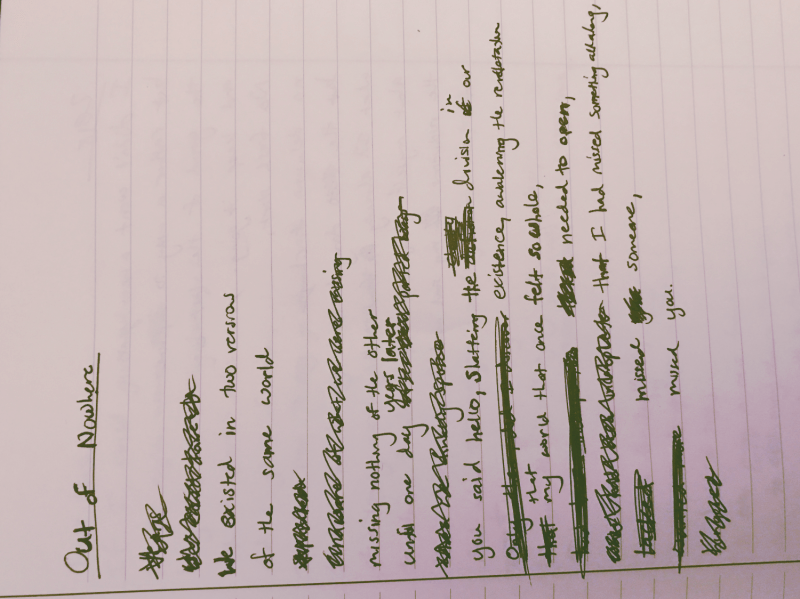 Out of Nowhere
We existed in two versions
of the same world
missing nothing of the other
until one day years later
you said hello, shutting the division in our
existence, awakening the realization
that my world that once felt so whole,
needed to open,
that I had missed something all along,
missed someone,
missed you.